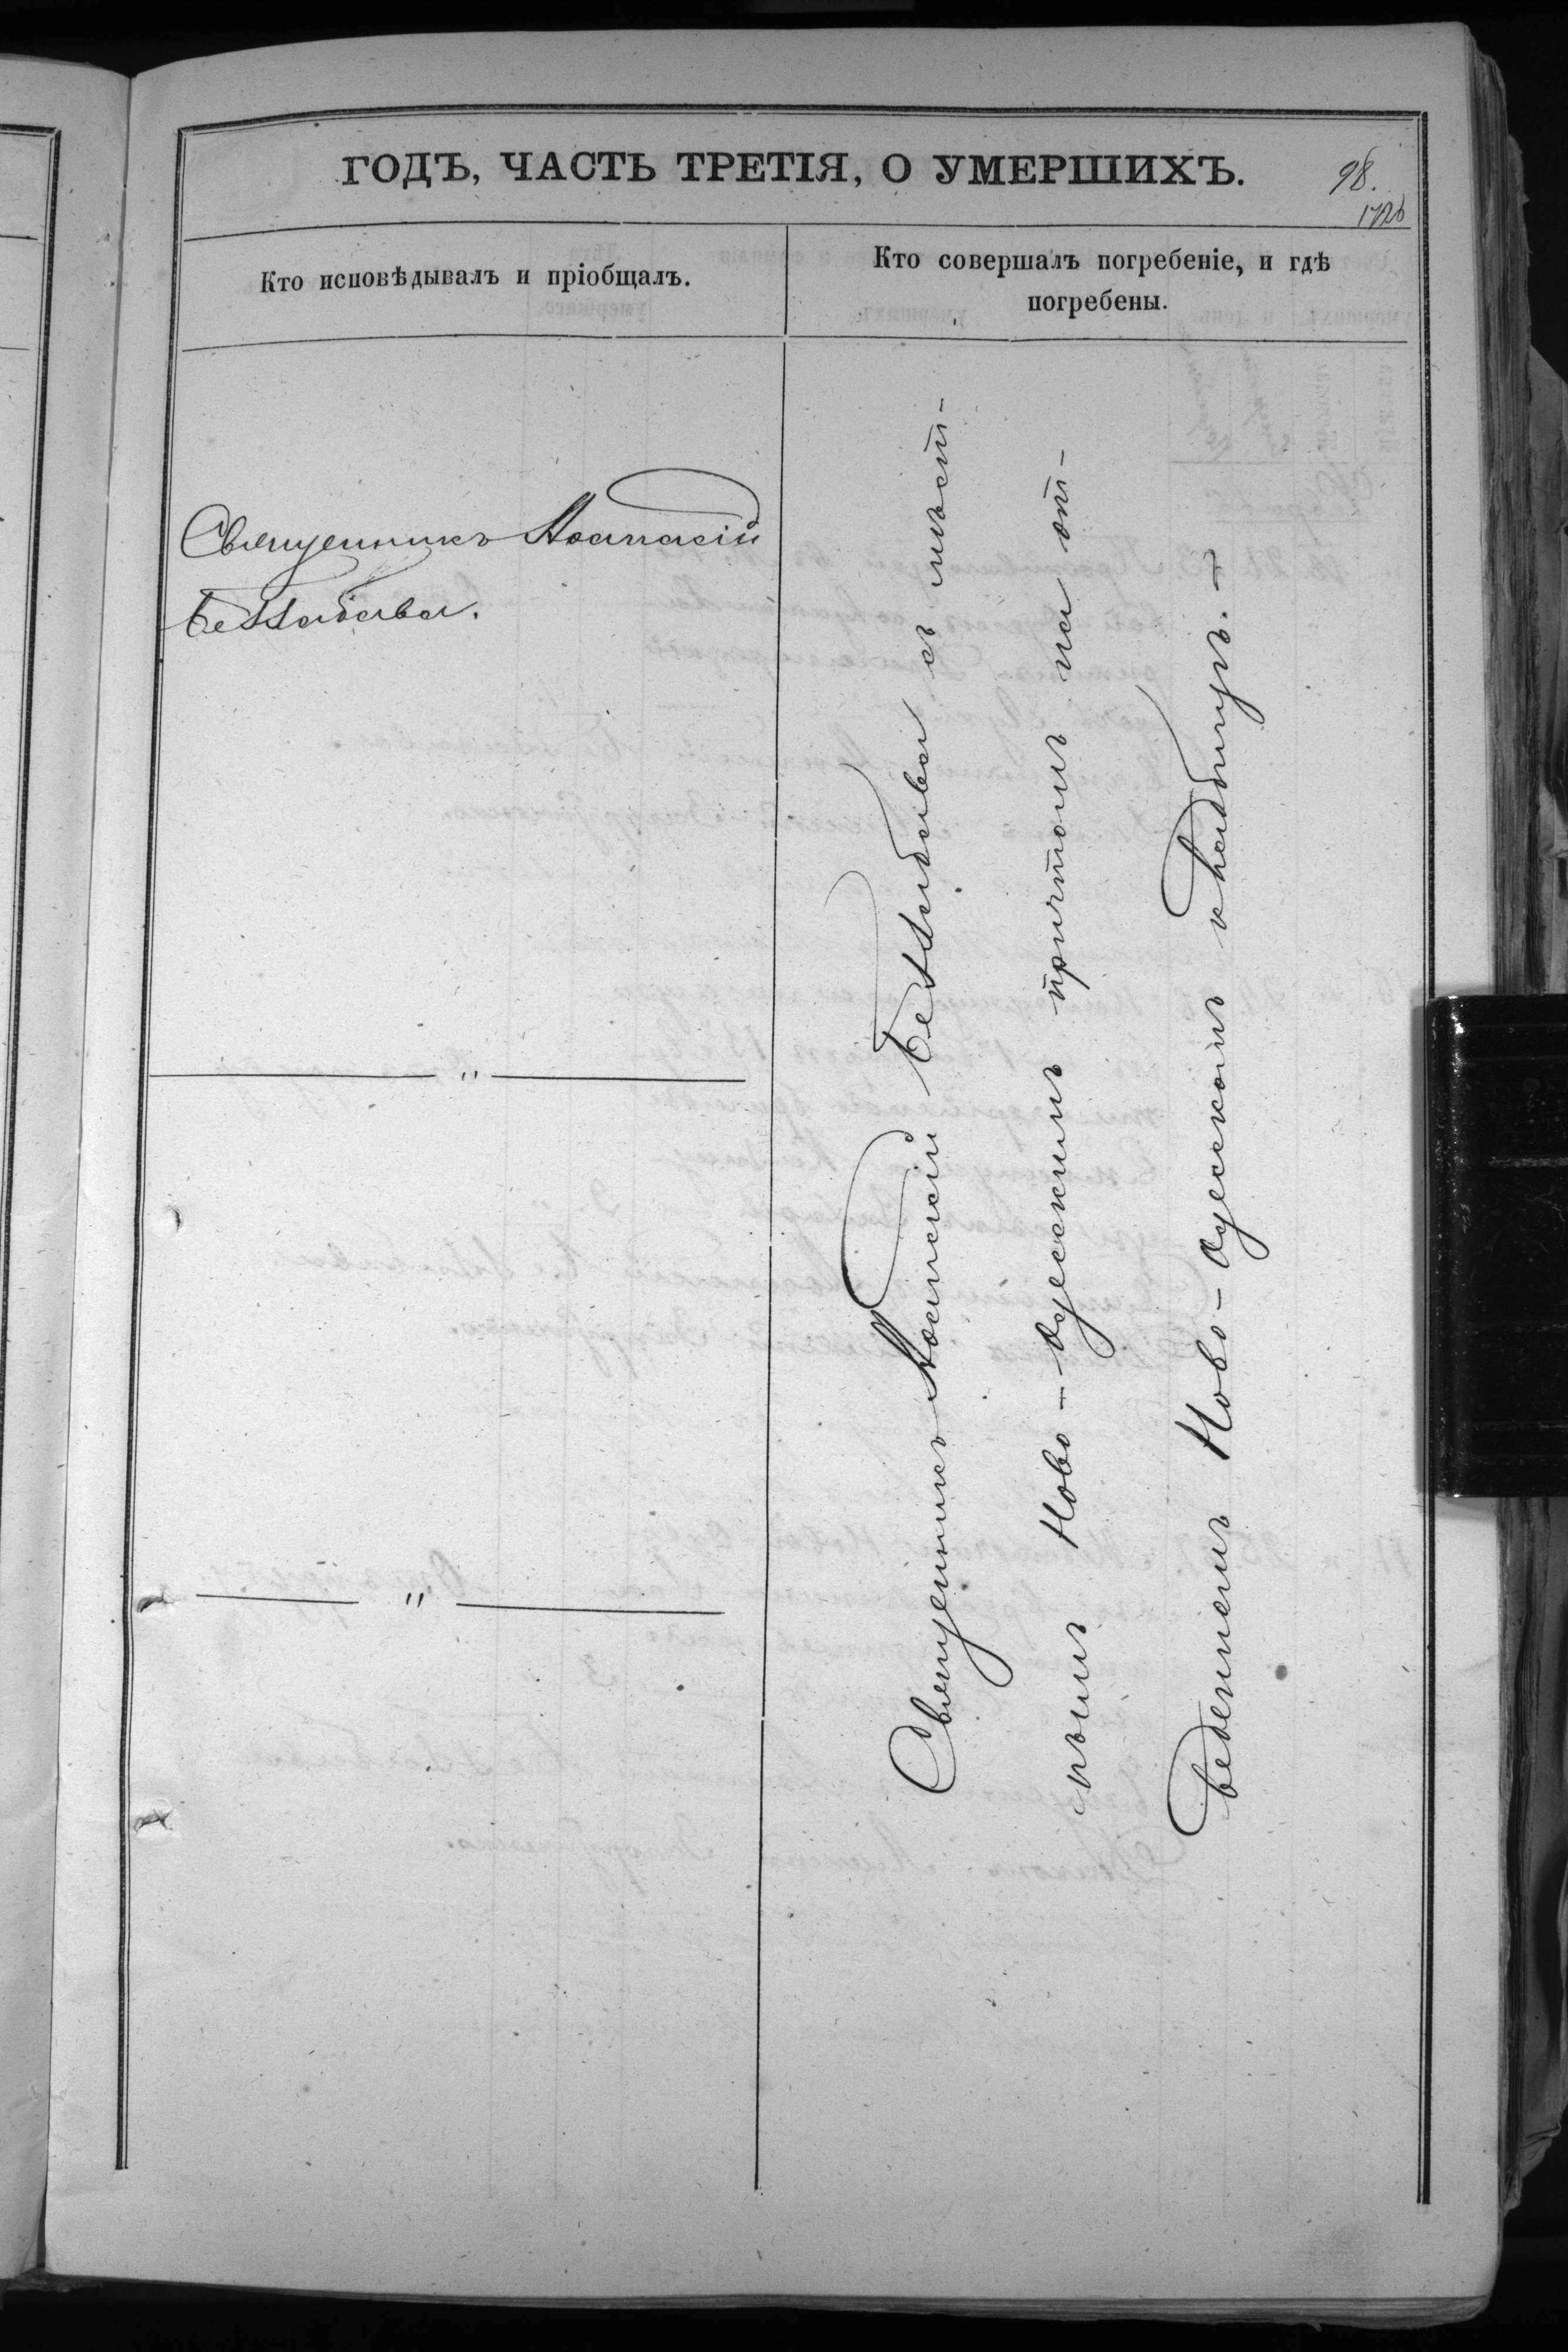 ГОДЪ, ЧАСТЬ ТРЕТІЯ, О УМЕРШИХЪ.
98.
Кто исповѣдывалъ и пріобщалъ.
Кто совершалъ погребеніе, и гдѣ
погребены.
Священникъ Аѳанасій
"
"
Священникъ Аѳанасій
съ мѣст-
нымъ Ново-Одесскимъ причтомъ на от-
веденномъ Ново-Одесскомъ кладбищѣ.-